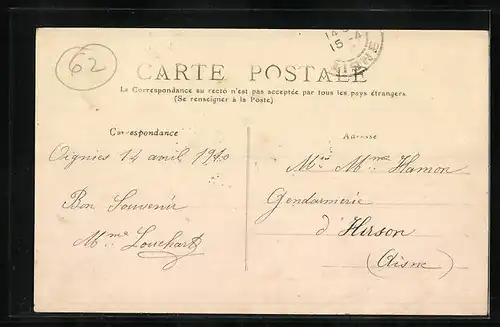 62
15-4
CARTE POSTALE
La Correspondance au recto n'est pas acceptée par tous les pays étrangers
(Se renseigner à la Poste)
Correspondance
Oignies 14 avril 1910
Bon Souvenir
Mme Louchart
Adresse
Mr Mme Hamon
Gendarmerie
d'Hirson
(Aisne)